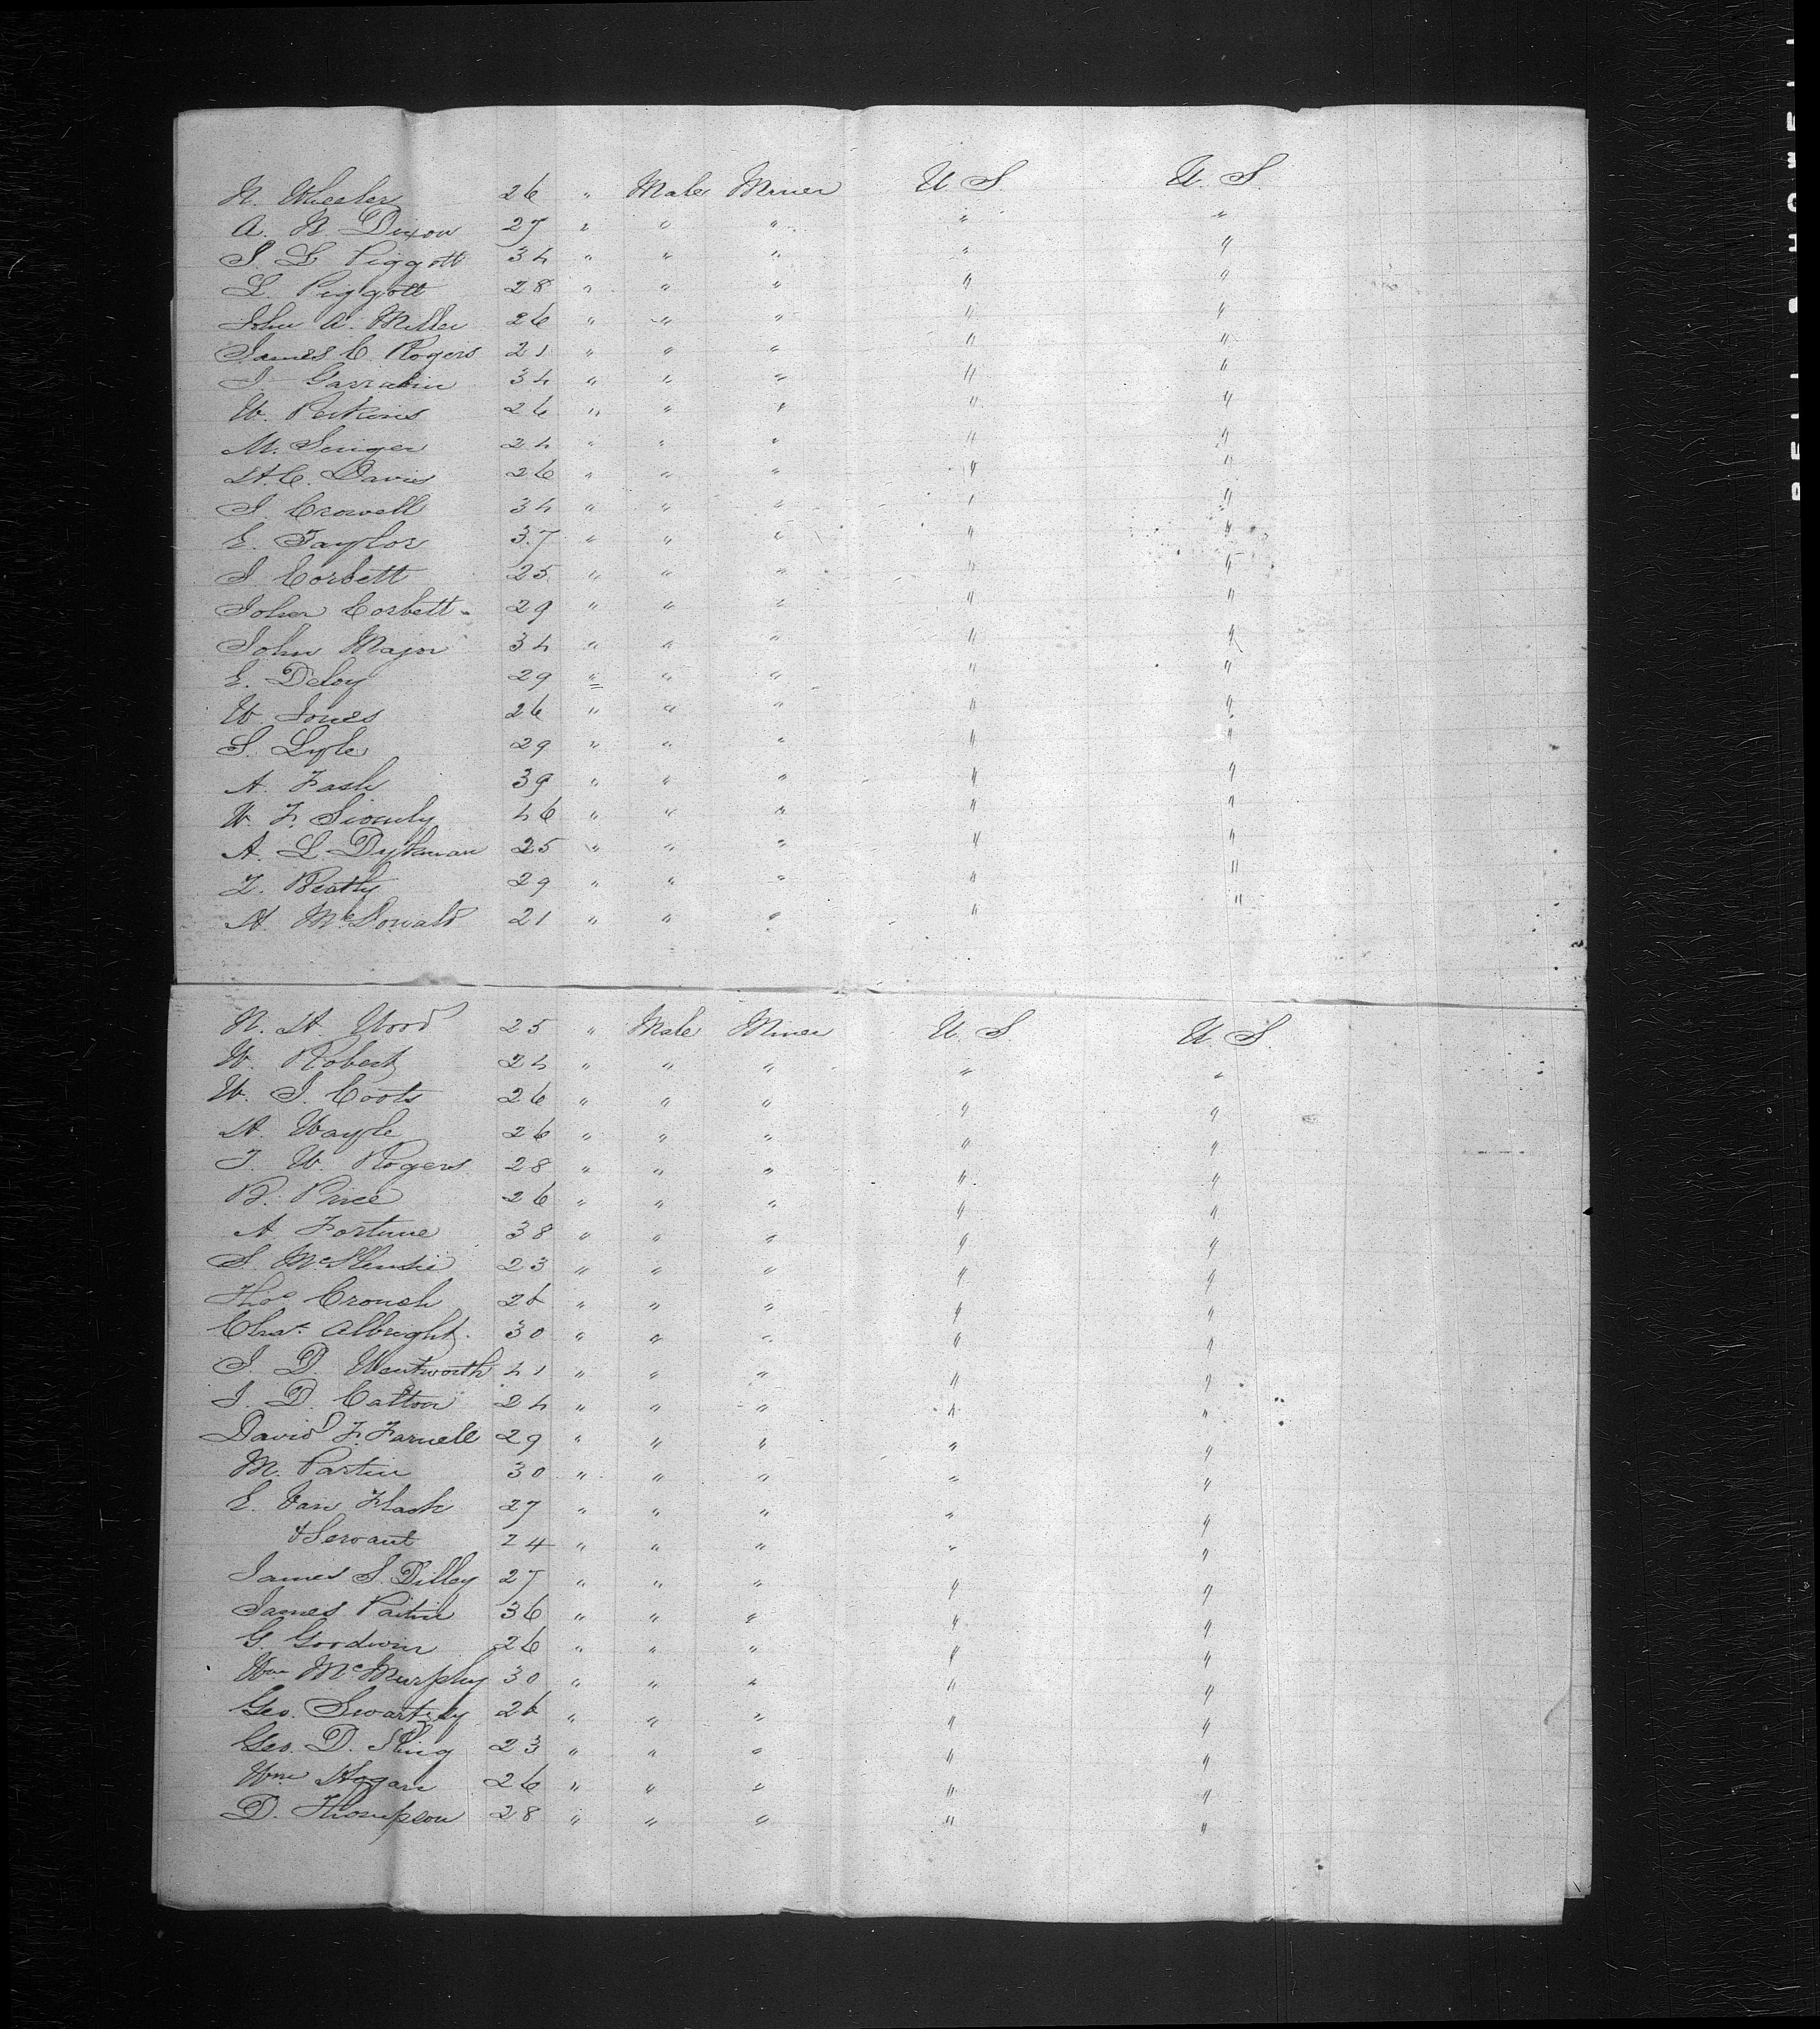 N. Wheeler 26 " Male Miner U S. U. S.
A. N. Dixon 27 " " " " "
S L Piggott 34 " " " " "
L. Piggott 28 " " " " "
John A. Miller 26 " " " " "
James C. Rogers 21 " " " " "
J. Garrabin 34 " " " " "
W. Perkins 26 " " " " "
M. Singer 24 " " " " "
H. C. Davies 26 " " " " "
J. Crowell 34 " " " " "
E. Taylor 37 " " " " "
J. Corbett 25 " " " " "
John Corbett 29 " " " " "
John Major 34 " " " " "
E. Deloy 29 " " " " "
W. Jones 26 " " " " "
S. Lyle 29 " " " " "
A. Fash 39 " " " " "
W. F. 46 " " " " "
A. L. Dykman 25 " " " " "
Z. Beatty 29 " " " " "
H. McDonald 21 " " " " "
N. H. Wood 25 " Male Miner U. S. U. S.
W. Robert 24 " " " " "
W. J. Coots 26 " " " " "
H. Wayle 26 " " " " "
T. W. Rogers 28 " " " " "
B. Price 26 " " " " "
A Fortune 38 " " " " "
S. McKensie 23 " " " " "
Thos Crouch 26 " " " " "
Chas. Albright. 30 " " " " "
J. D. Wentworth 41 " " " " "
J. D. Catton 24 " " " " "
David F. Farnell 29 " " " " "
M. Partin 30 " " " " "
E. Van Flack 27 " " " " "
& Servant 24 " " " " "
James S. Dilley 27 " " " " "
James Partin 36 " " " " "
G. Goodwin 26 " " " " "
Wm McMurphy 30 " " " " "
Geo. Swartzly 26 " " " " "
Geo. D. King 23 " " " " "
Wm Hogan 26 " " " " "
D. Thompson 28 " " " " "